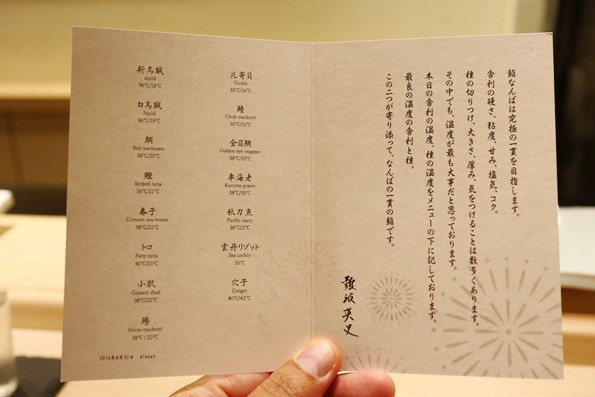 新烏賊
Squid
36℃/18℃
白烏賊
Squid
36℃/19℃
鯛
Red sea-bream
36℃/20℃
鰹
Striped tuna
36℃/21℃
春子
Crimson sea-bream
38℃/21℃
トロ
Fatty tuna
40℃/23℃
小肌
Gizzard shad
38℃/22℃
鯵
Horse mackerel
38℃/22℃
北寄貝
Cockle
35℃/16℃
鯖
Chub mackerel
38℃/21℃
金目鯛
Golden eye snapper
38℃/25℃
車海老
Kuruma prawn
38℃/35℃
秋刀魚
Pacific saury
38℃/21℃
雲丹リゾット
Sea urchin
26℃
穴子
Conger
40℃/42℃
鮨なんばは究極の一貫を目指します。
舎利の硬さ、粘度、甘み、塩気、コク。
種の切りつけ、大きさ、厚み、気をつけることは数多くあります。
その中でも、温度が最も大事だと思っております。
本日の舎利の温度、種の温度をメニューの下に記しております。
最良の温度の舎利と種。
この二つが寄り添って、なんばの一貫の鮨です。
難波英史